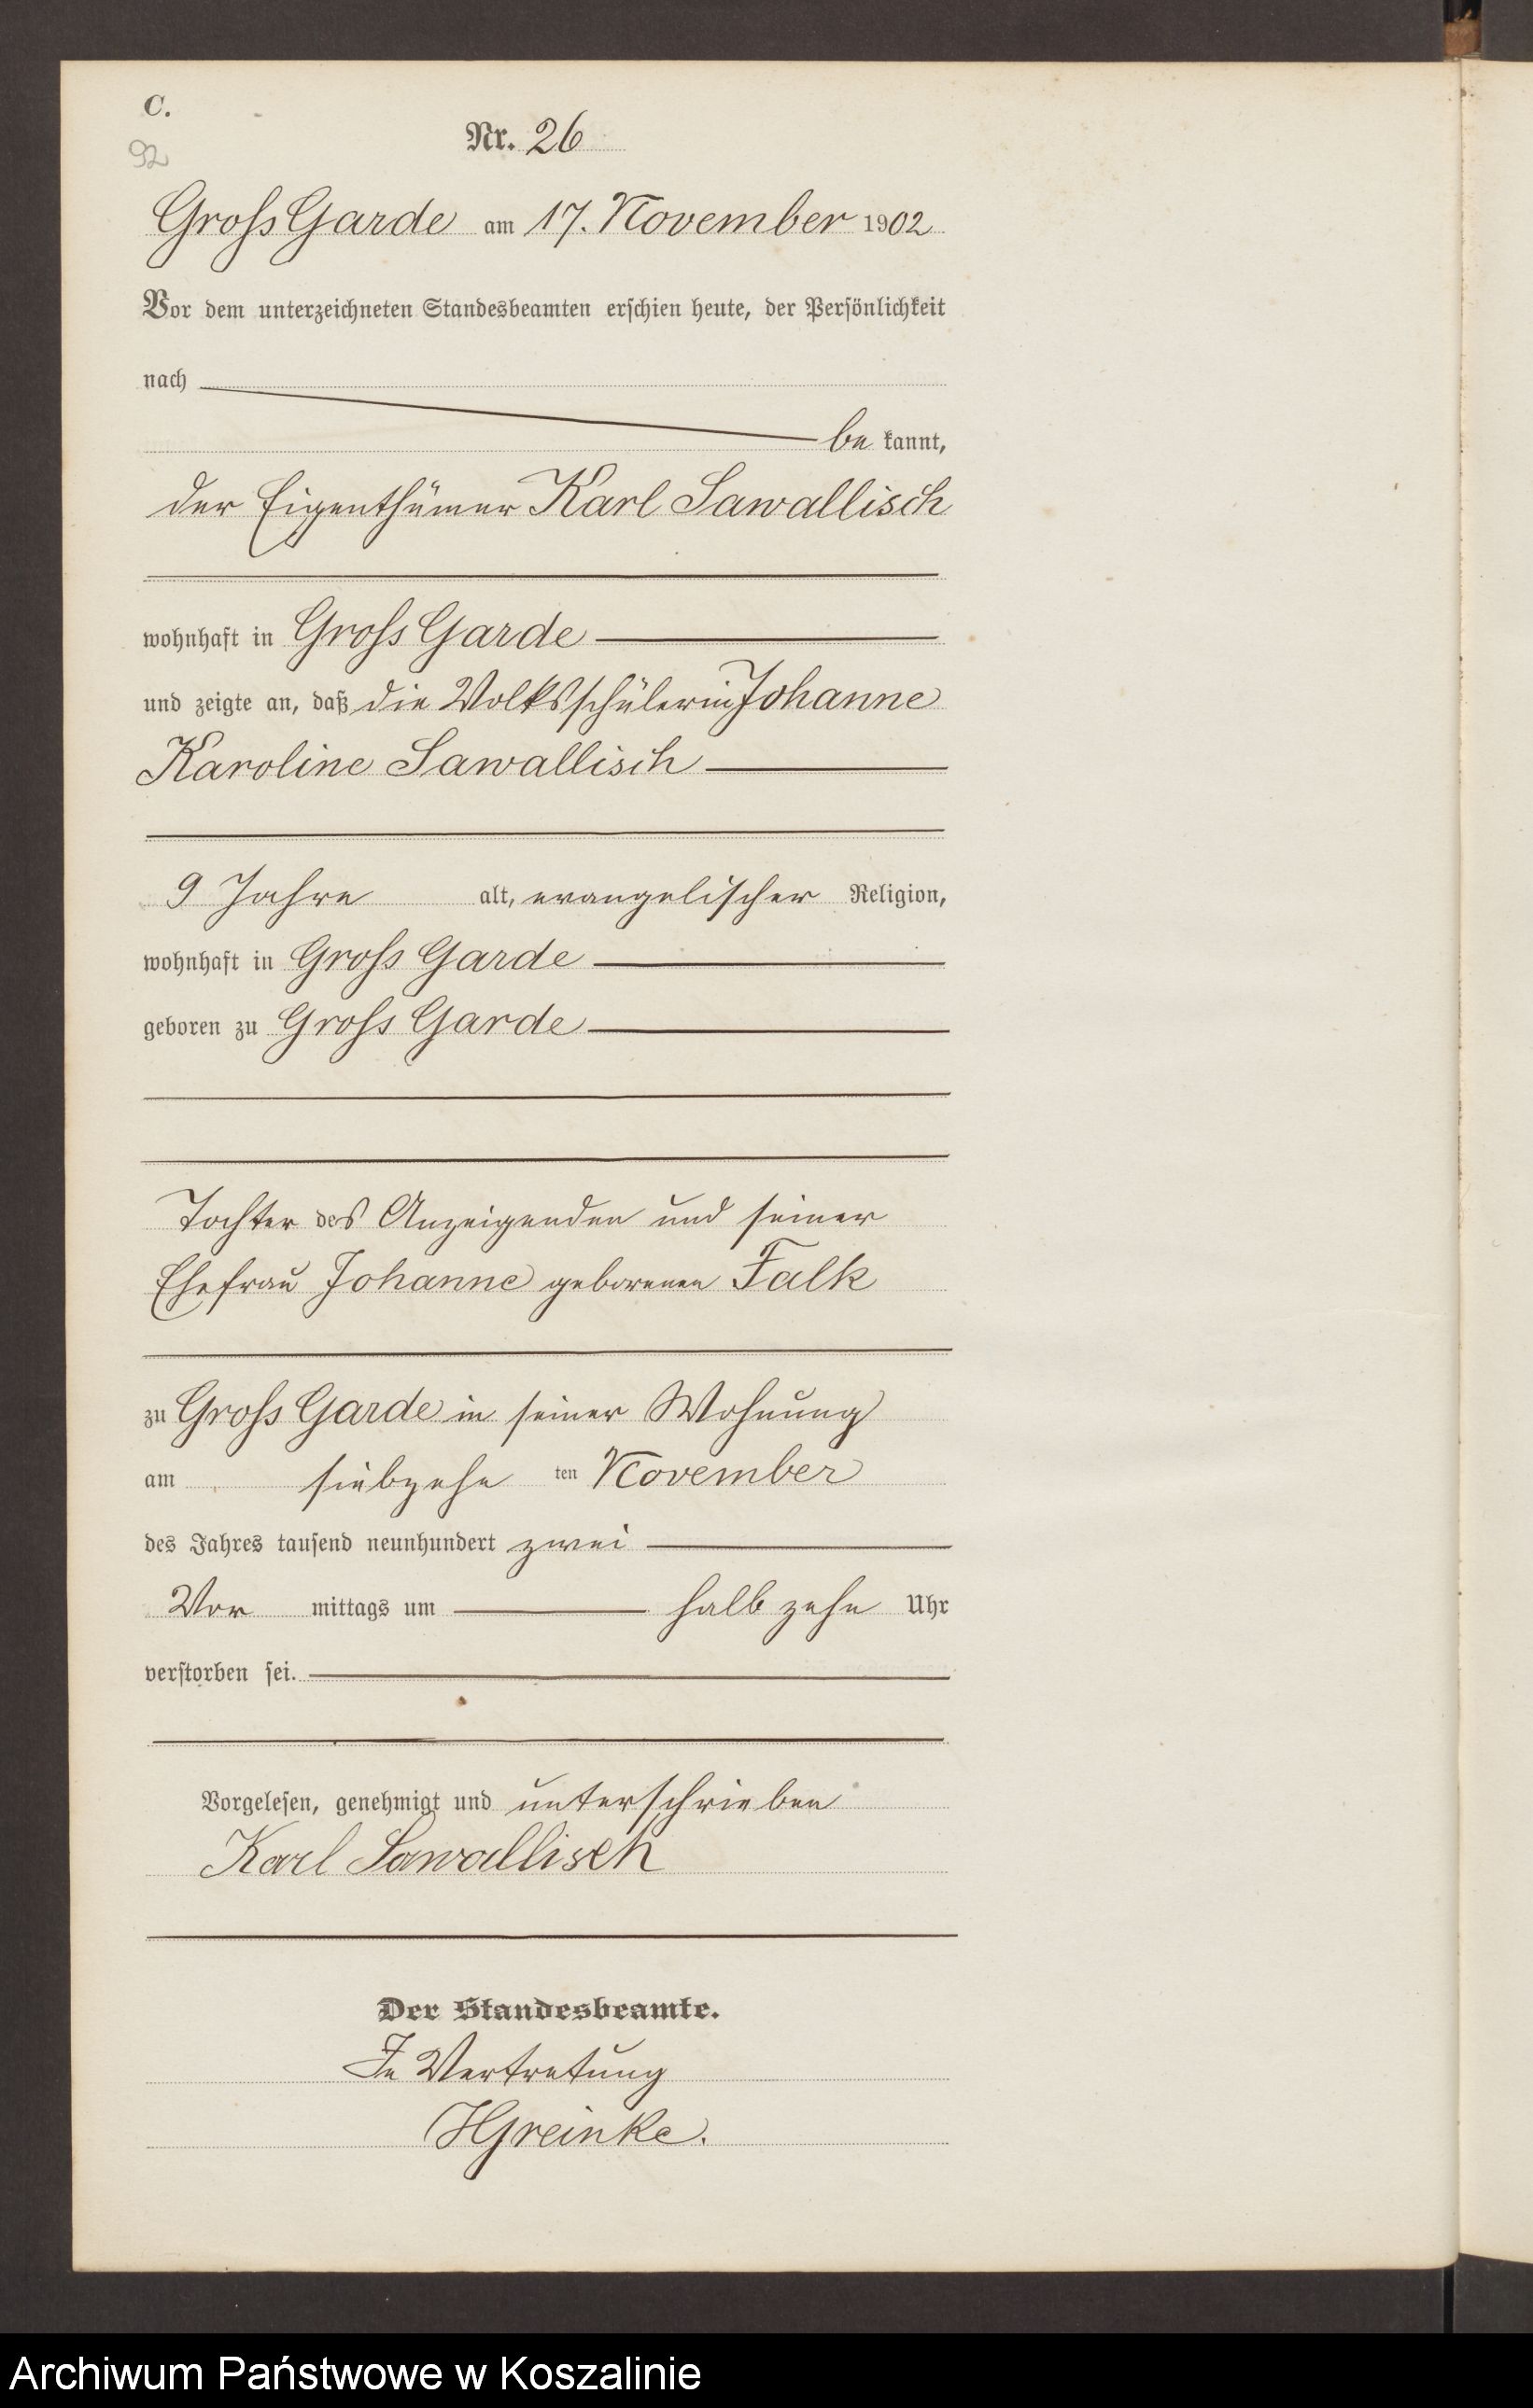 C.
92
Nr. 26
Gross Garde am 17. November 1902
Vor dem unterzeichneten Standesbeamten erschien heute, der Persönlichkeit
nach
be kannt,
der Eigenthümer Karl Sawallisch
wohnhaft in Gross Garde
und zeigte an, daß die Volksschülerin Johanne
Karoline Sawallisch
9 Jahre alt, evangelischer Religion,
wohnhaft in Gross Garde
geboren zu Gross Garde
Tochter des Anzeigenden und seiner
Ehefrau Johanne geborenen Falk
zu Gross Garde in seiner Wohnung
am siebzehn ten November
des Jahres tausend neunhundert zwei
Vor mittags um halb zehn Uhr
verstorben sei.
Vorgelesen, genehmigt und unterschrieben
Karl Sawallisch
Der Standesbeamte.
In Vertretung
HGreinke.
Archiwum Państwowe w Koszalinie